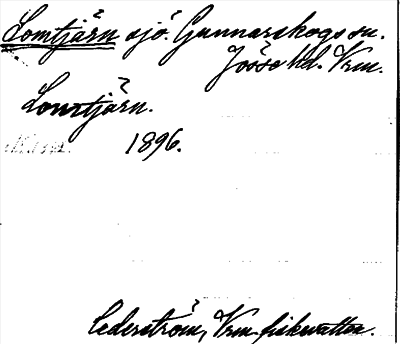 Lomtjärn sjö. Gunnarskogs sn.
Jösse hd. Vrm.
Lomtjärn.
1896.
Cederström, Vrm fiskevatten.